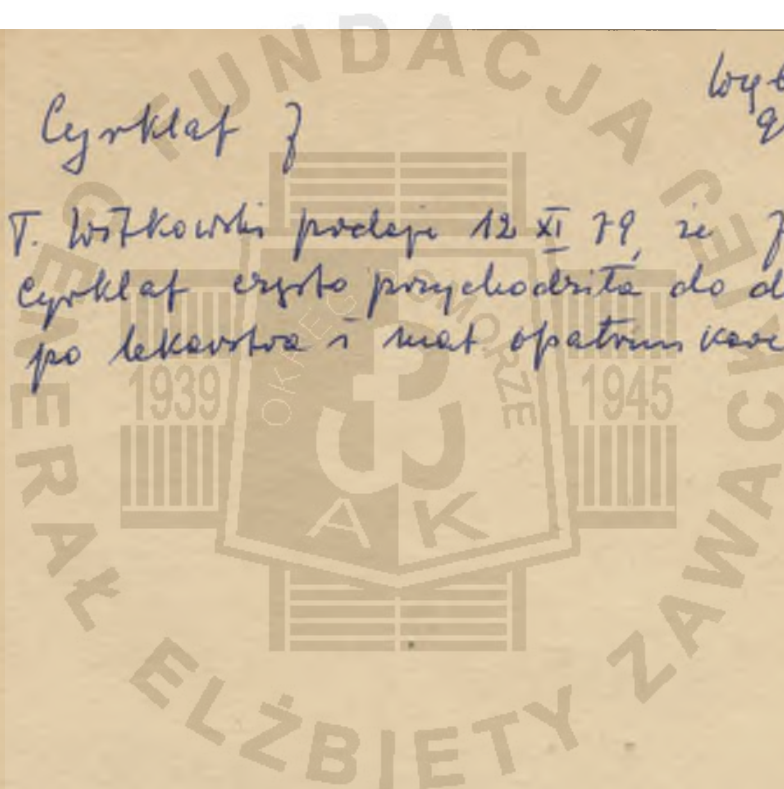 Cyrklaf J
T. Witkowski podaje 12 XI 79, że J
Cyrklaf często przychodziła do d
po lekarstwa i mat opatrunkowe
FUNDACJA
GENERAŁ ELŻBIETY ZAWACKIEJ
OKRĘG POMORZE
1939
1945
AK